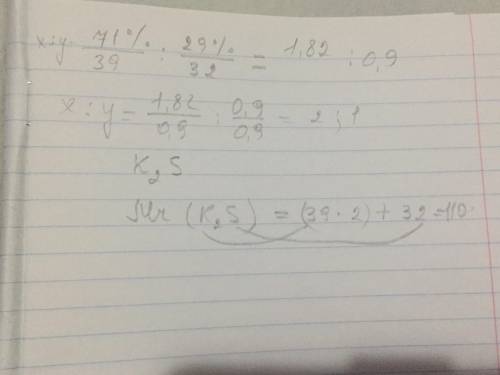 x:y. 71% / 39 : 29% / 32 = 1,82 : 0,9
x : y = 1,82 / 0,9 : 0,9 / 0,9 = 2 : 1
K₂S
Mr (K₂S) = (39·2) + 32 = 110.